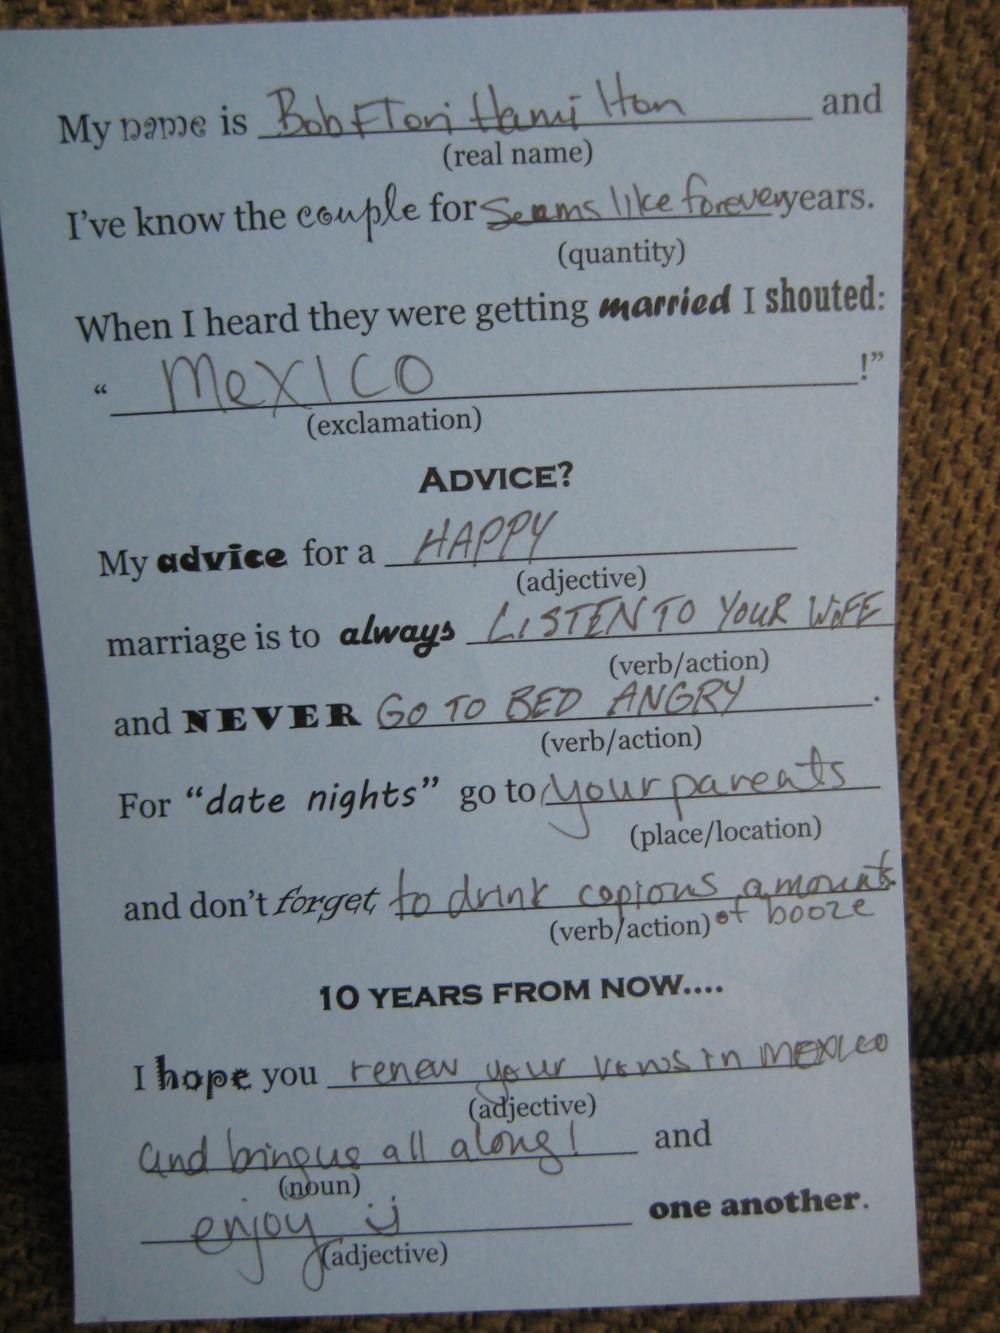 My name is Bob & Tori Hamilton and
(real name)
I've know the couple for seems like forever years.
(quantity)
When I heard they were getting married I shouted:
“ MEXICO !”
(exclamation)
ADVICE?
My advice for a HAPPY
(adjective)
marriage is to always LISTEN TO YOUR WIFE
(verb/action)
and NEVER GO TO BED ANGRY .
(verb/action)
For “date nights” go to your parents
(place/location)
and don't forget, to drink copious amounts.
(verb/action) of booze
10 YEARS FROM NOW....
I hope you renew your vows in MEXICO
(adjective)
and bring us all along! and
(noun)
enjoy :) one another.
(adjective)